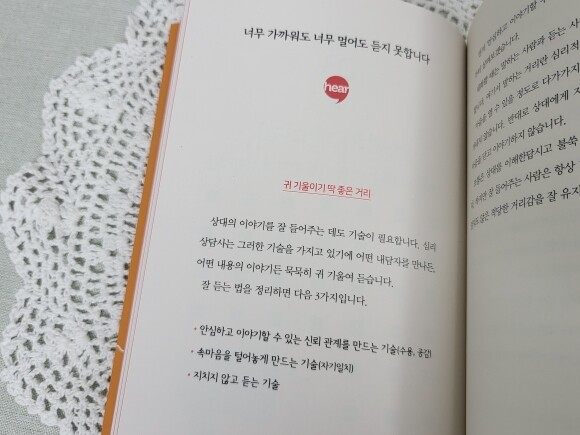 너무 가까워도 너무 멀어도 듣지 못합니다
hear
귀 기울이기 딱 좋은 거리
상대의 이야기를 잘 들어주는 데도 기술이 필요합니다. 심리
상담사는 그러한 기술을 가지고 있기에 어떤 내담자를 만나든,
어떤 내용의 이야기든 묵묵히 귀 기울여 듣습니다.
잘 듣는 법을 정리하면 다음 3가지입니다.
• 안심하고 이야기할 수 있는 신뢰 관계를 만드는 기술(수용, 공감)
• 속마음을 털어놓게 만드는 기술(자기일치)
• 지치지 않고 듣는 기술
안심하고 이야기할 수
말하는 사람과 듣는 사
여기서 말하는 거리란 심리적
수 있을 정도로 다가가지
않습니다. 반대로 상대에게 지
이야기하지 않습니다.
상대를 이해한답시고 불쑥
하지만 잘 들어주는 사람은 항상
않은, 적당한 거리감을 잘 유지